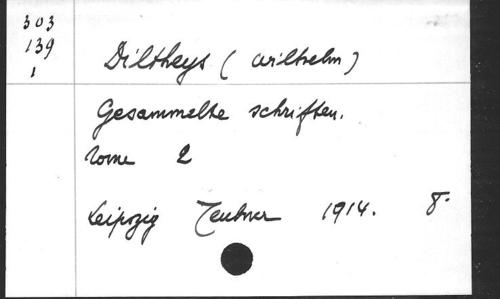 303
139
1
Diltheys (Wilhelm)
Gesammelte Schriften.
Tome 2
Leipzig Teubner 1914. 8°